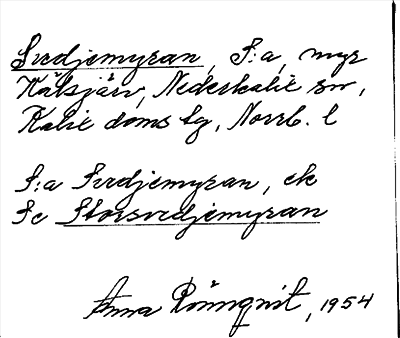 Svedjemyran, S:a, myr
Räktjärv, Nederkalix sn,
Kalix doms lg, Norrb. l
S:a Svedjemyran, ek
Se Storsvedjemyran
Anna Rönnqvist, 1954